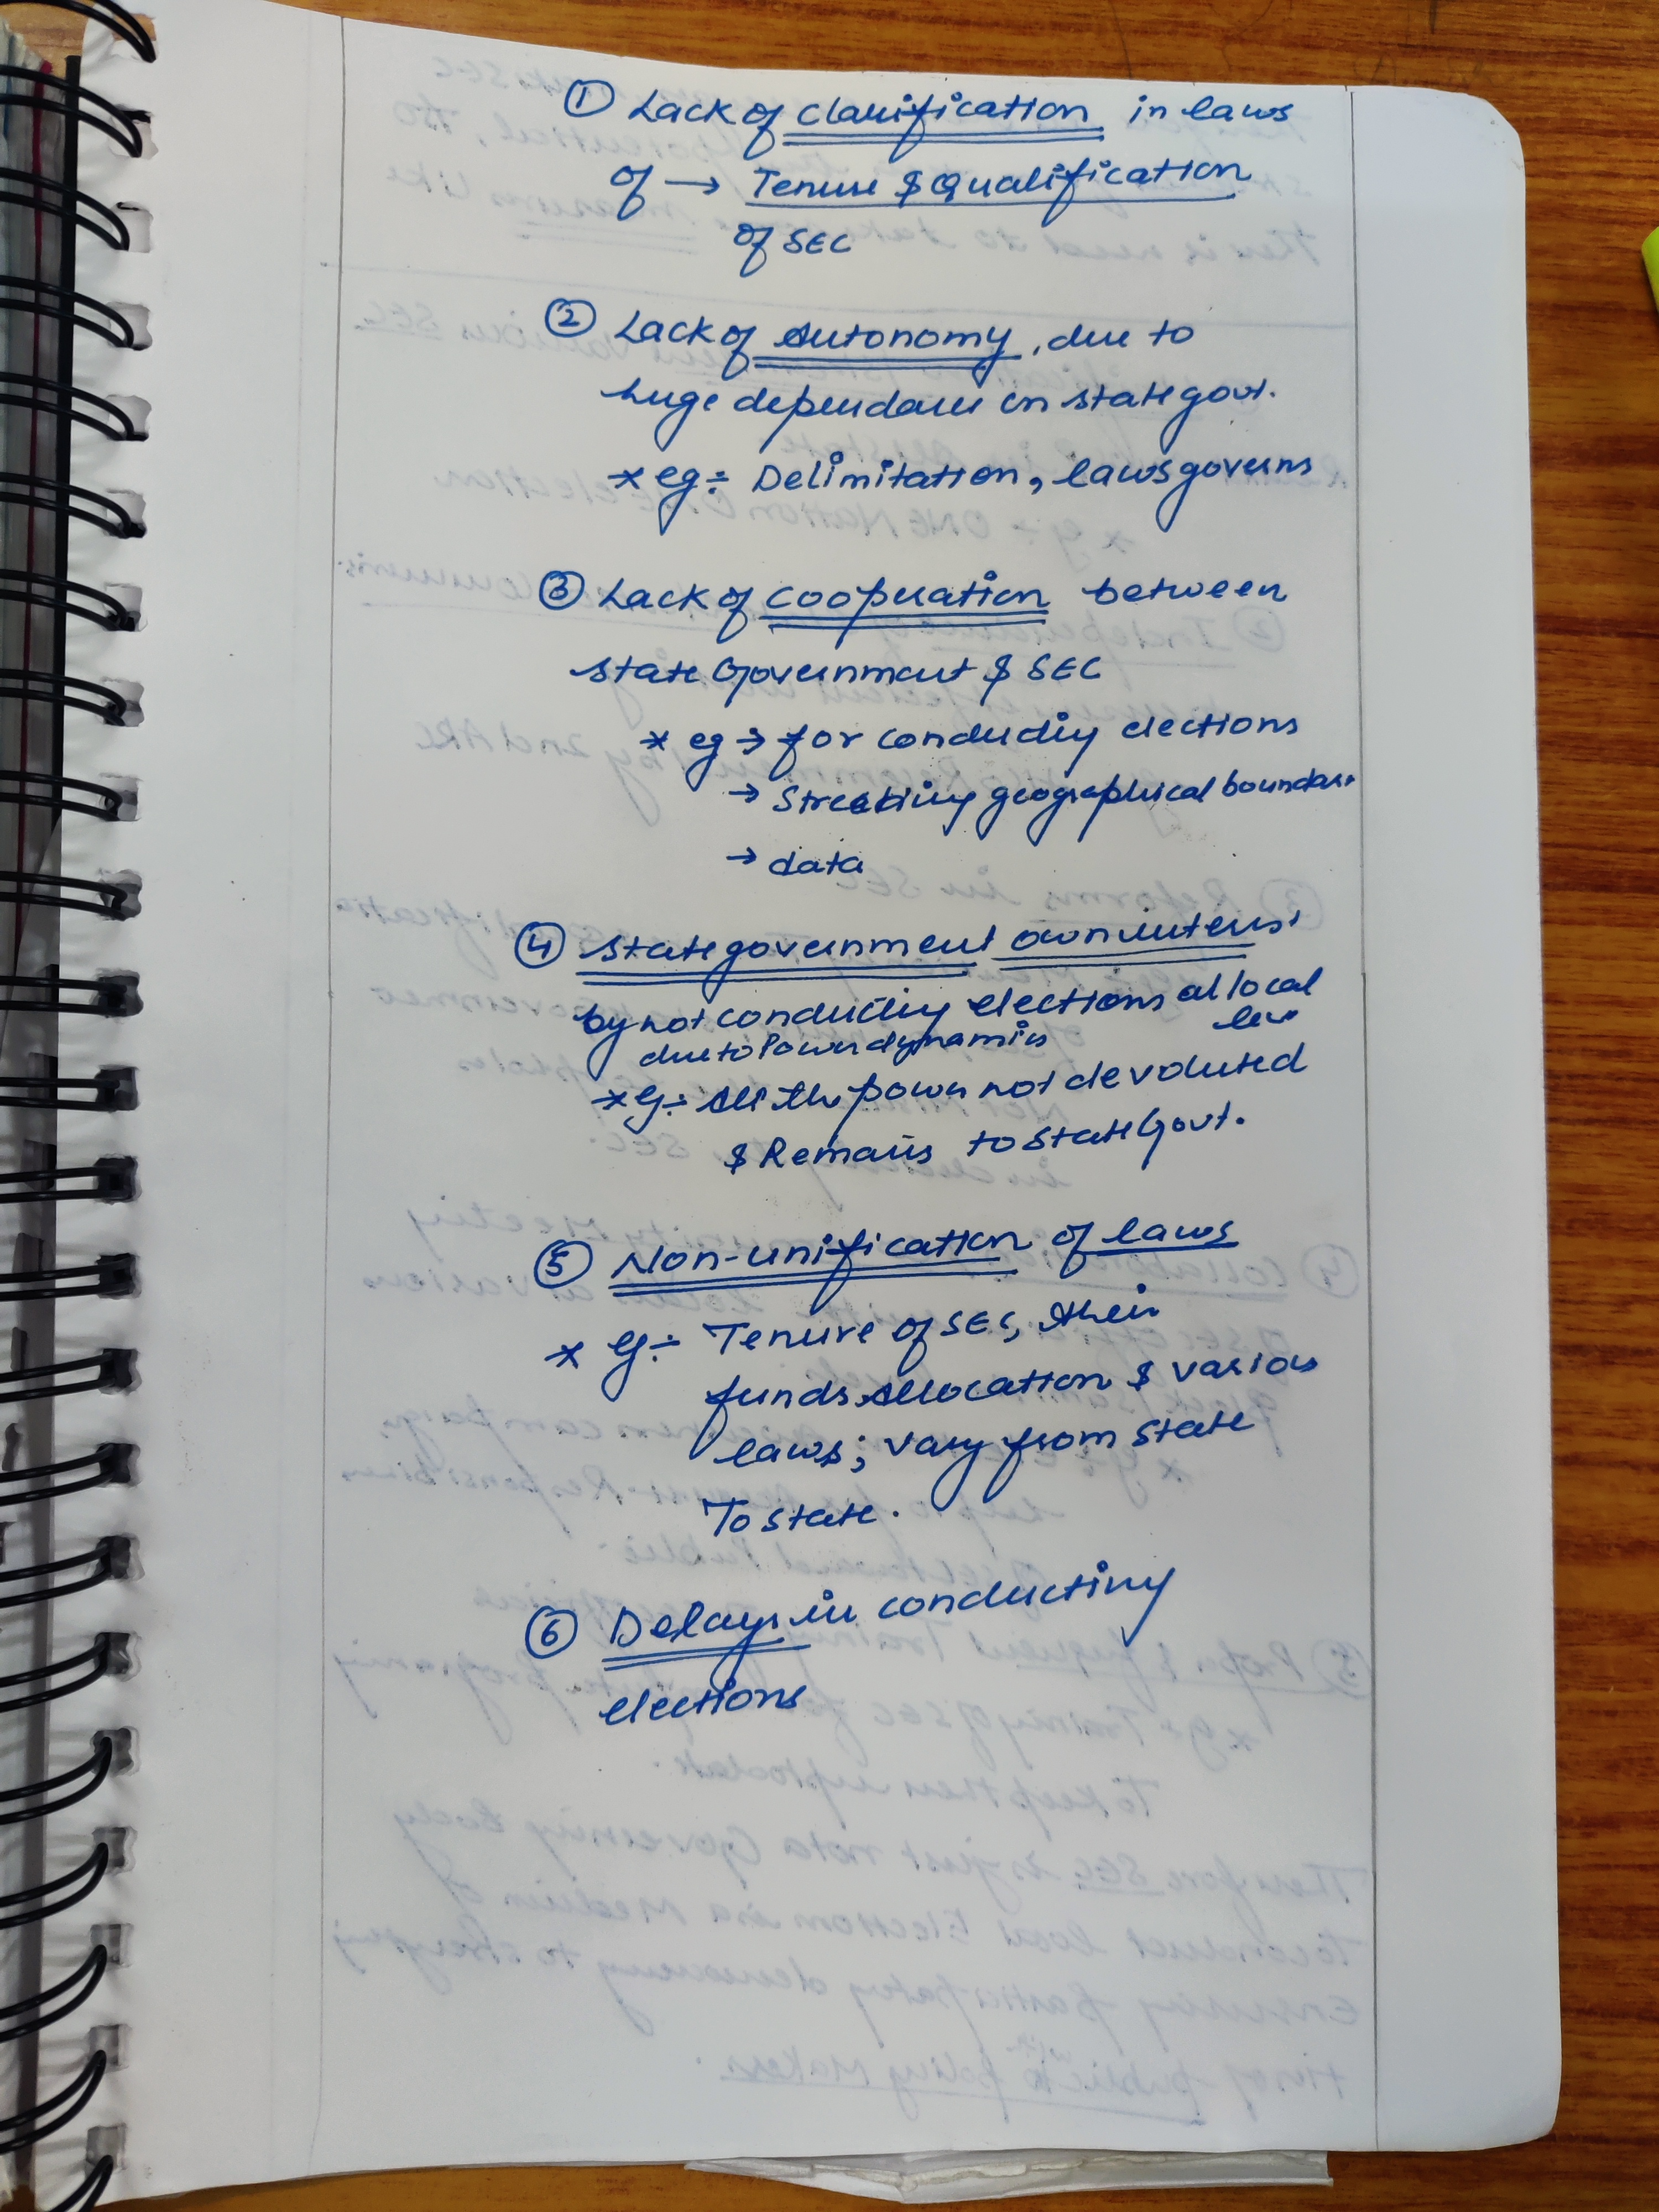 ① Lack of clarification in laws
of → Tenure & Qualification
of SEC
② Lack of Autonomy, due to
huge dependance on state govt.
* eg ÷ Delimitation, laws governs
③ Lack of cooperation between
state Government & SEC
* eg → for conducting elections
→ geographical boundar
→ data
④ State government own interest
by not conducting elections at local
level
due to Power dynamics
* eg ÷ All the power not devoluted
& Remains to State Govt.
⑤ Non-unification of laws
* eg ÷ Tenure of SEC, their
funds Allocation & various
laws; vary from State
To state.
⑥ Delays in conducting
elections